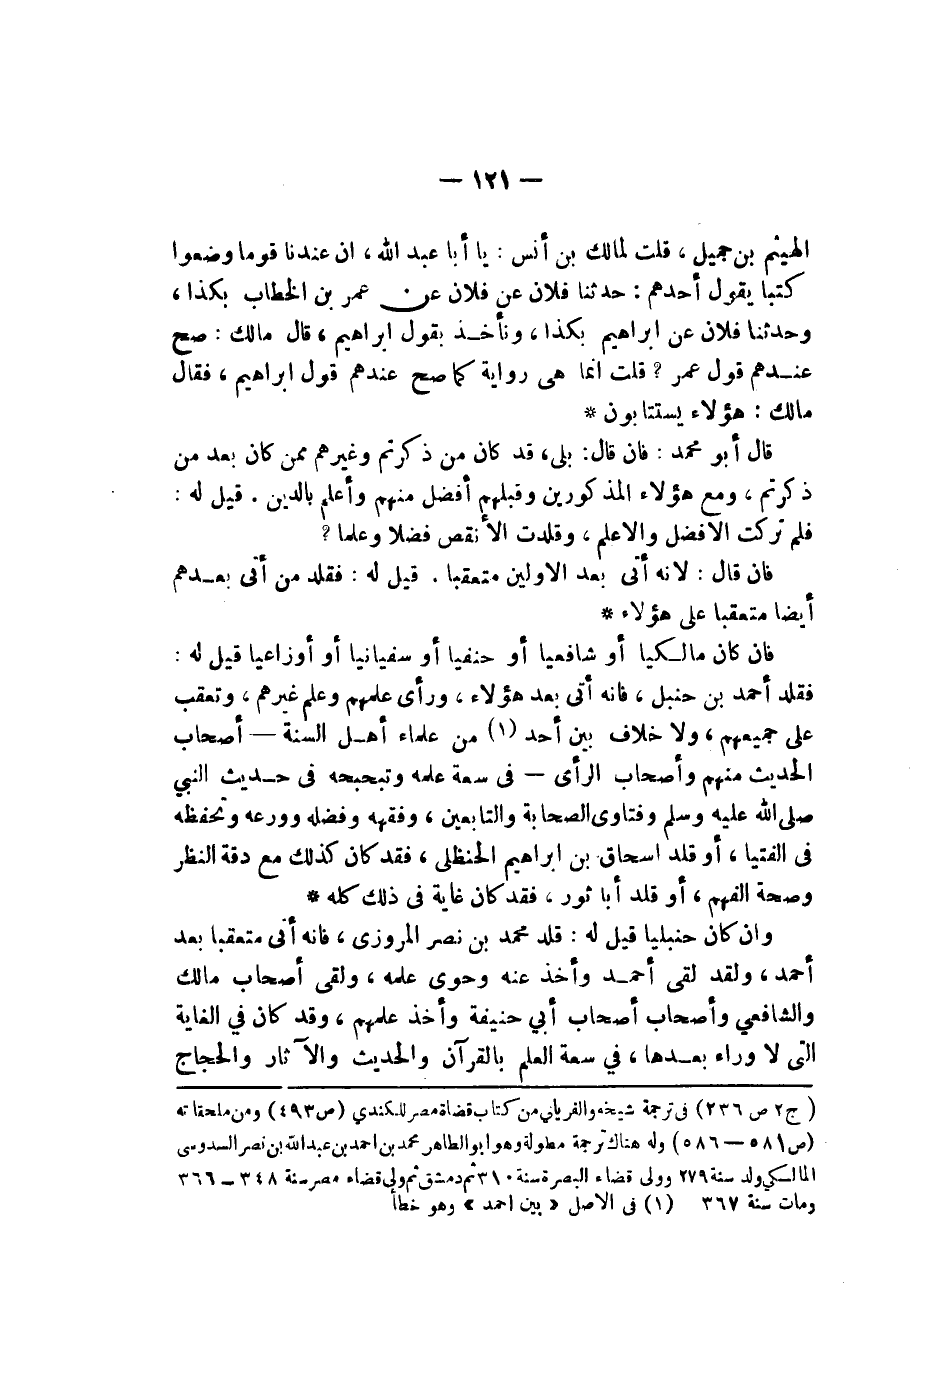 — ١٢١ —
الهيثم بن جميل ، قلت لمالك بن أنس : يا أبا عبد الله ، ان عندنا قوما وضعوا
كتبا يقول أحدهم : حدثنا فلان عن فلان عن عمر بن الخطاب بكذا ،
وحدثنا فلان عن ابراهيم بكذا ، ونأخـذ بقول ابراهيم ، قال مالك : صح
عنـدهم قول عمر ؟ قلت انما هى رواية كما صح عندهم قول ابراهيم ، فقال
مالك : هؤلاء يستتابون *
قال أبو محمد : فان قال: بلى، قد كان من ذكرتم وغيرهم ممن كان بعد من
ذكرتم ، ومع هؤلاء المذكورين وقبلهم أفضل منهم وأعلم بالدين . قيل له :
فلم تركت الافضل والاعلم ، وقلدت الأنقص فضلا وعلما ؟
فان قال : لانه أتى بعد الاولين متعقبا . قيل له : فقلد من أتى بعـدهم
أيضا متعقبا على هؤلاء *
فان كان مالـكيا أو شافعيا أو حنفيا أو سفيانيا أو أوزاعيا قيل له :
فقلد أحمد بن حنبل ، فانه أتى بعد هؤلاء ، ورأى علمهم وعلم غيرهم ، وتعقب
على جميعهم ، ولا خلاف بين أحد (١) من علماء أهـل السنة — أصحاب
الحديث منهم وأصحاب الرأى — فى سعة علمه وتبحبحه فى حـديث النبي
صلى الله عليه وسلم وفتاوى الصحابة والتابعين ، وفقهه وفضله وورعه وتحفظه
فى الفتيا ، أو قلد اسحاق بن ابراهيم الحنظلى ، فقد كان كذلك مع دقة النظر
وصحة الفهم ، أو قلد أبا ثور ، فقد كان غاية فى ذلك كله *
وان كان حنبليا قيل له : قلد محمد بن نصر المروزى ، فانه أتى متعقبا بعد
أحمد ، ولقد لقى أحمـد وأخذ عنه وحوى علمه ، ولقى أصحاب مالك
والشافعي وأصحاب أصحاب أبي حنيفة وأخذ علمهم ، وقد كان في الغاية
التى لا وراء بعـدها ، في سعة العلم بالقرآن والحديث والآثار والحجاج
( ج٢ ص ٢٣٦) فى ترجمة شيخه والفريابي من كتاب قضاة مصر للكندي (ص ٤٩٣) ومن ملحقاته
(ص ٥٨١ — ٥٨٦) وله هناك ترجمة مطولة وهو ابو الطاهر محمد بن احمد بن عبد الله بن نصر السدوسى
المالـكي ولد سنة ٢٧٩ وولى قضاء البصرة سنة ٣١٠ ثم دمشق ثم ولي قضاء مصر سنة ٣٤٨ — ٣٦٦
ومات سنة ٣٦٧ (١) فى الاصل « بين احمد » وهو خطأ